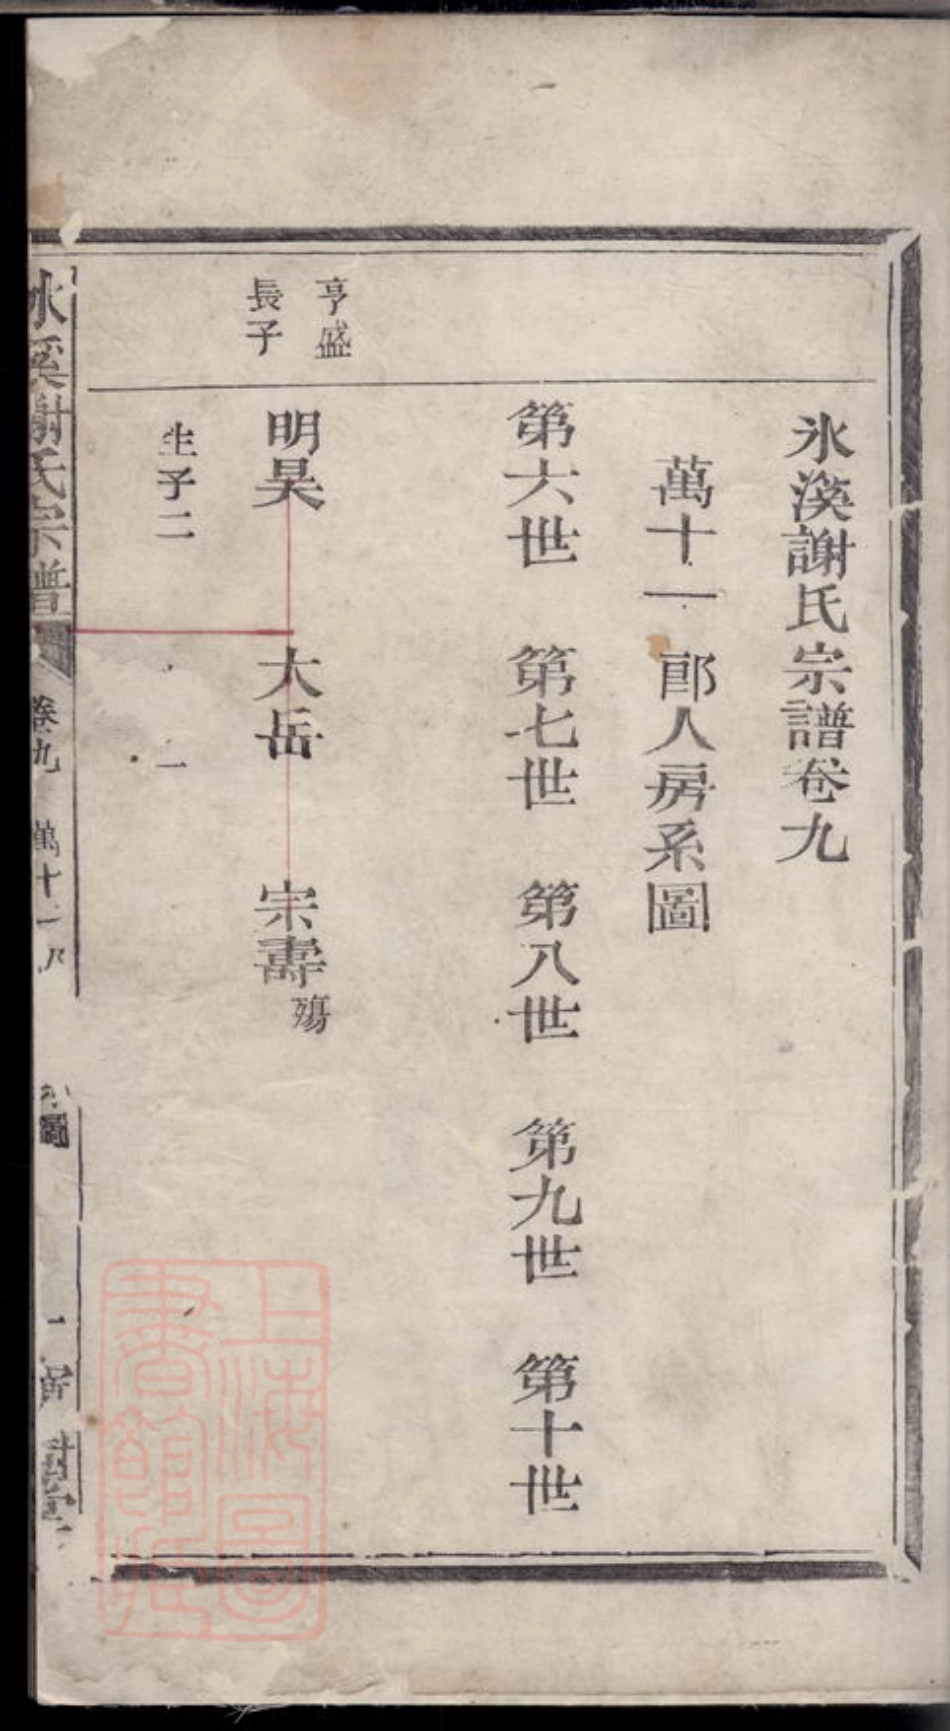 氷溪謝氏宗譜卷九
萬十一郎人房系圖
第六世 第七世 第八世 第九世 第十世
亨盛
長子
明昊 大岳 宗壽殤
生子二 一
氷溪謝氏宗譜 卷九 萬十一 圖 一 樹堂
上海圖
書館藏